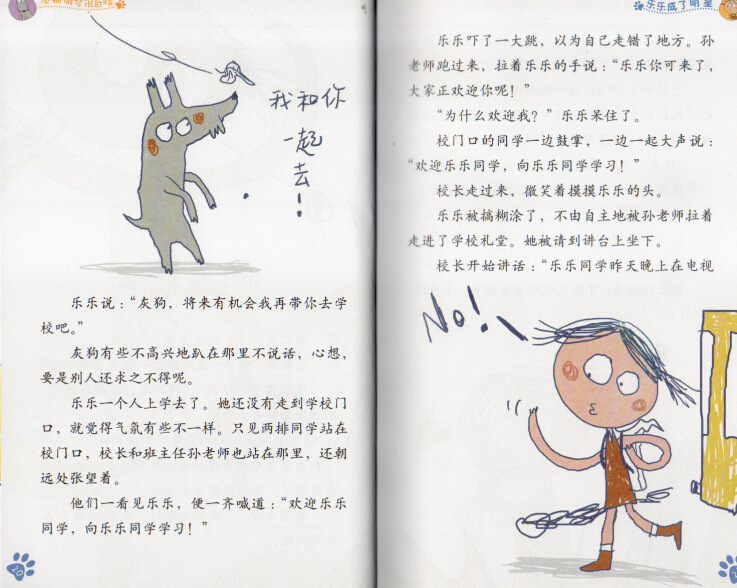 我和你
一起
去!
乐乐说:“灰狗,将来有机会我再带你去学
校吧。”
灰狗有些不高兴地趴在那里不说话,心想,
要是别人还求之不得呢。
乐乐一个人上学去了。她还没有走到学校门
口,就觉得气氛有些不一样。只见两排同学站在
校门口,校长和班主任孙老师也站在那里,还朝
远处张望着。
他们一看见乐乐,便一齐喊道:“欢迎乐乐
同学,向乐乐同学学习!”
20
乐乐成了明星
乐乐吓了一大跳,以为自己走错了地方。孙
老师跑过来,拉着乐乐的手说:“乐乐你可来了,
大家正欢迎你呢!”
“为什么欢迎我?”乐乐呆住了。
校门口的同学一边鼓掌,一边一起大声说:
“欢迎乐乐同学,向乐乐同学学习!”
校长走过来,微笑着摸摸乐乐的头。
乐乐被搞糊涂了,不由自主地被孙老师拉着
走进了学校礼堂。她被请到讲台上坐下。
校长开始讲话:“乐乐同学昨天晚上在电视
No!